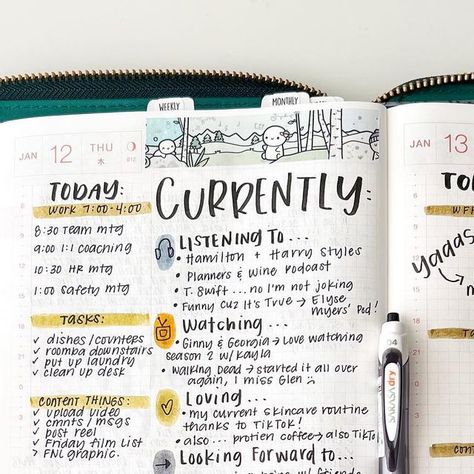 WEEKLY
MONTHLY
JAN 12 THU
木
TODAY:
WORK 7:00-4:00
8:30 TEAM mtg
9:00 1:1 COACHING
10:30 HR mtg
1:00 SAFETY mtg
TASKS:
✓ dishes/counters
✓ roomba downstairs
✓ put up laundry
✓ clean up desk
CONTENT THINGS:
✓ upload video
✓ cmnts / msgs
✓ post reel
✓ Friday film list
> FNL graphic.
CURRENTLY:
LISTENING TO...
• Hamilton + Harry Styles
• Planners & Wine Podcast
• T. Swift... no I'm not joking
• Funny Cuz It's True → Elyse
Myers' Pod!
Watching...
• Ginny & Georgia → Love watching
season 2 w/ kayla
• Walking Dead → started it all over
again, I miss Glen :(
Loving...
• my current skincare routine
thanks to TikTok!
• also... protien coffee → also TikTok
Looking Forward to...
04
SARASA dry
JAN 13
TO
yaaas